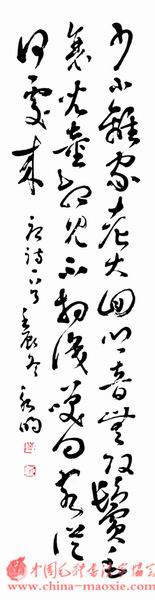 少小離家老大回鄉音無改鬢毛
衰兒童相見不相識笑問客從
何處來
詩一首
中国毛体书法家协会
www.china-maoxie.com